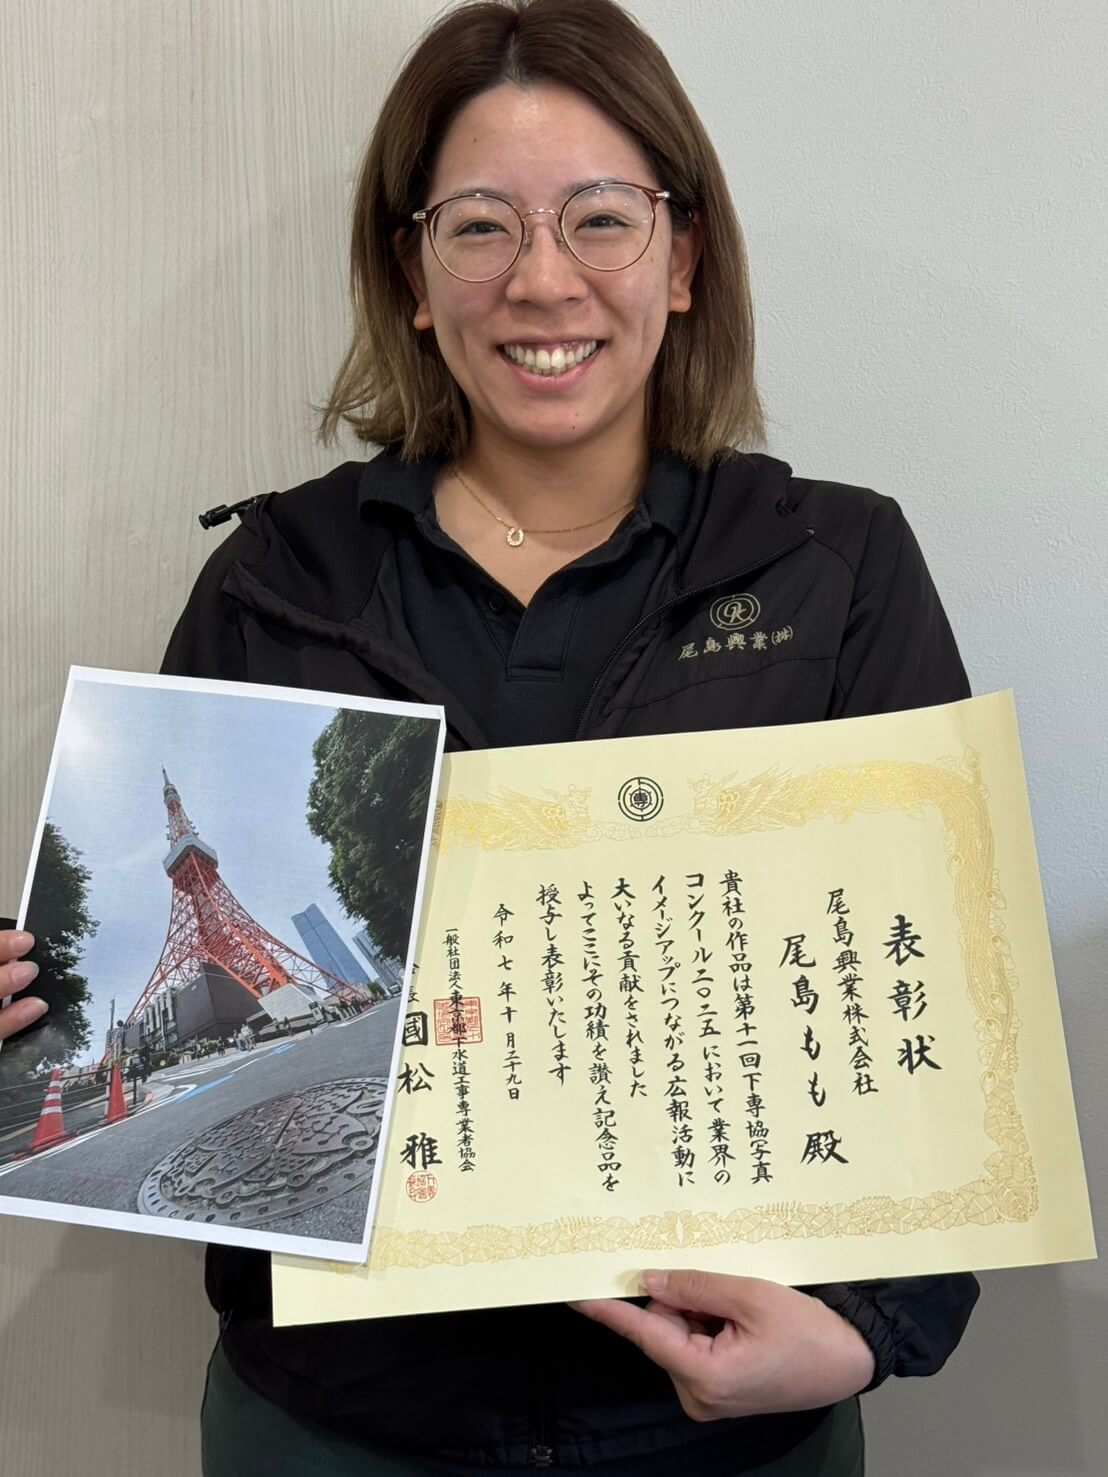 尾島興業㈱
専
表彰状
尾島興業株式会社
尾島もも殿
貴社の作品は第十一回下専協写真
コンクール二〇二五において業界の
イメージアップにつながる広報活動に
大いなる貢献をされました
よってここにその功績を讃え記念品を
授与し表彰いたします
令和七年十月二十九日
一般社団法人東京都下水道工事専業者協会
会長 國松 雅